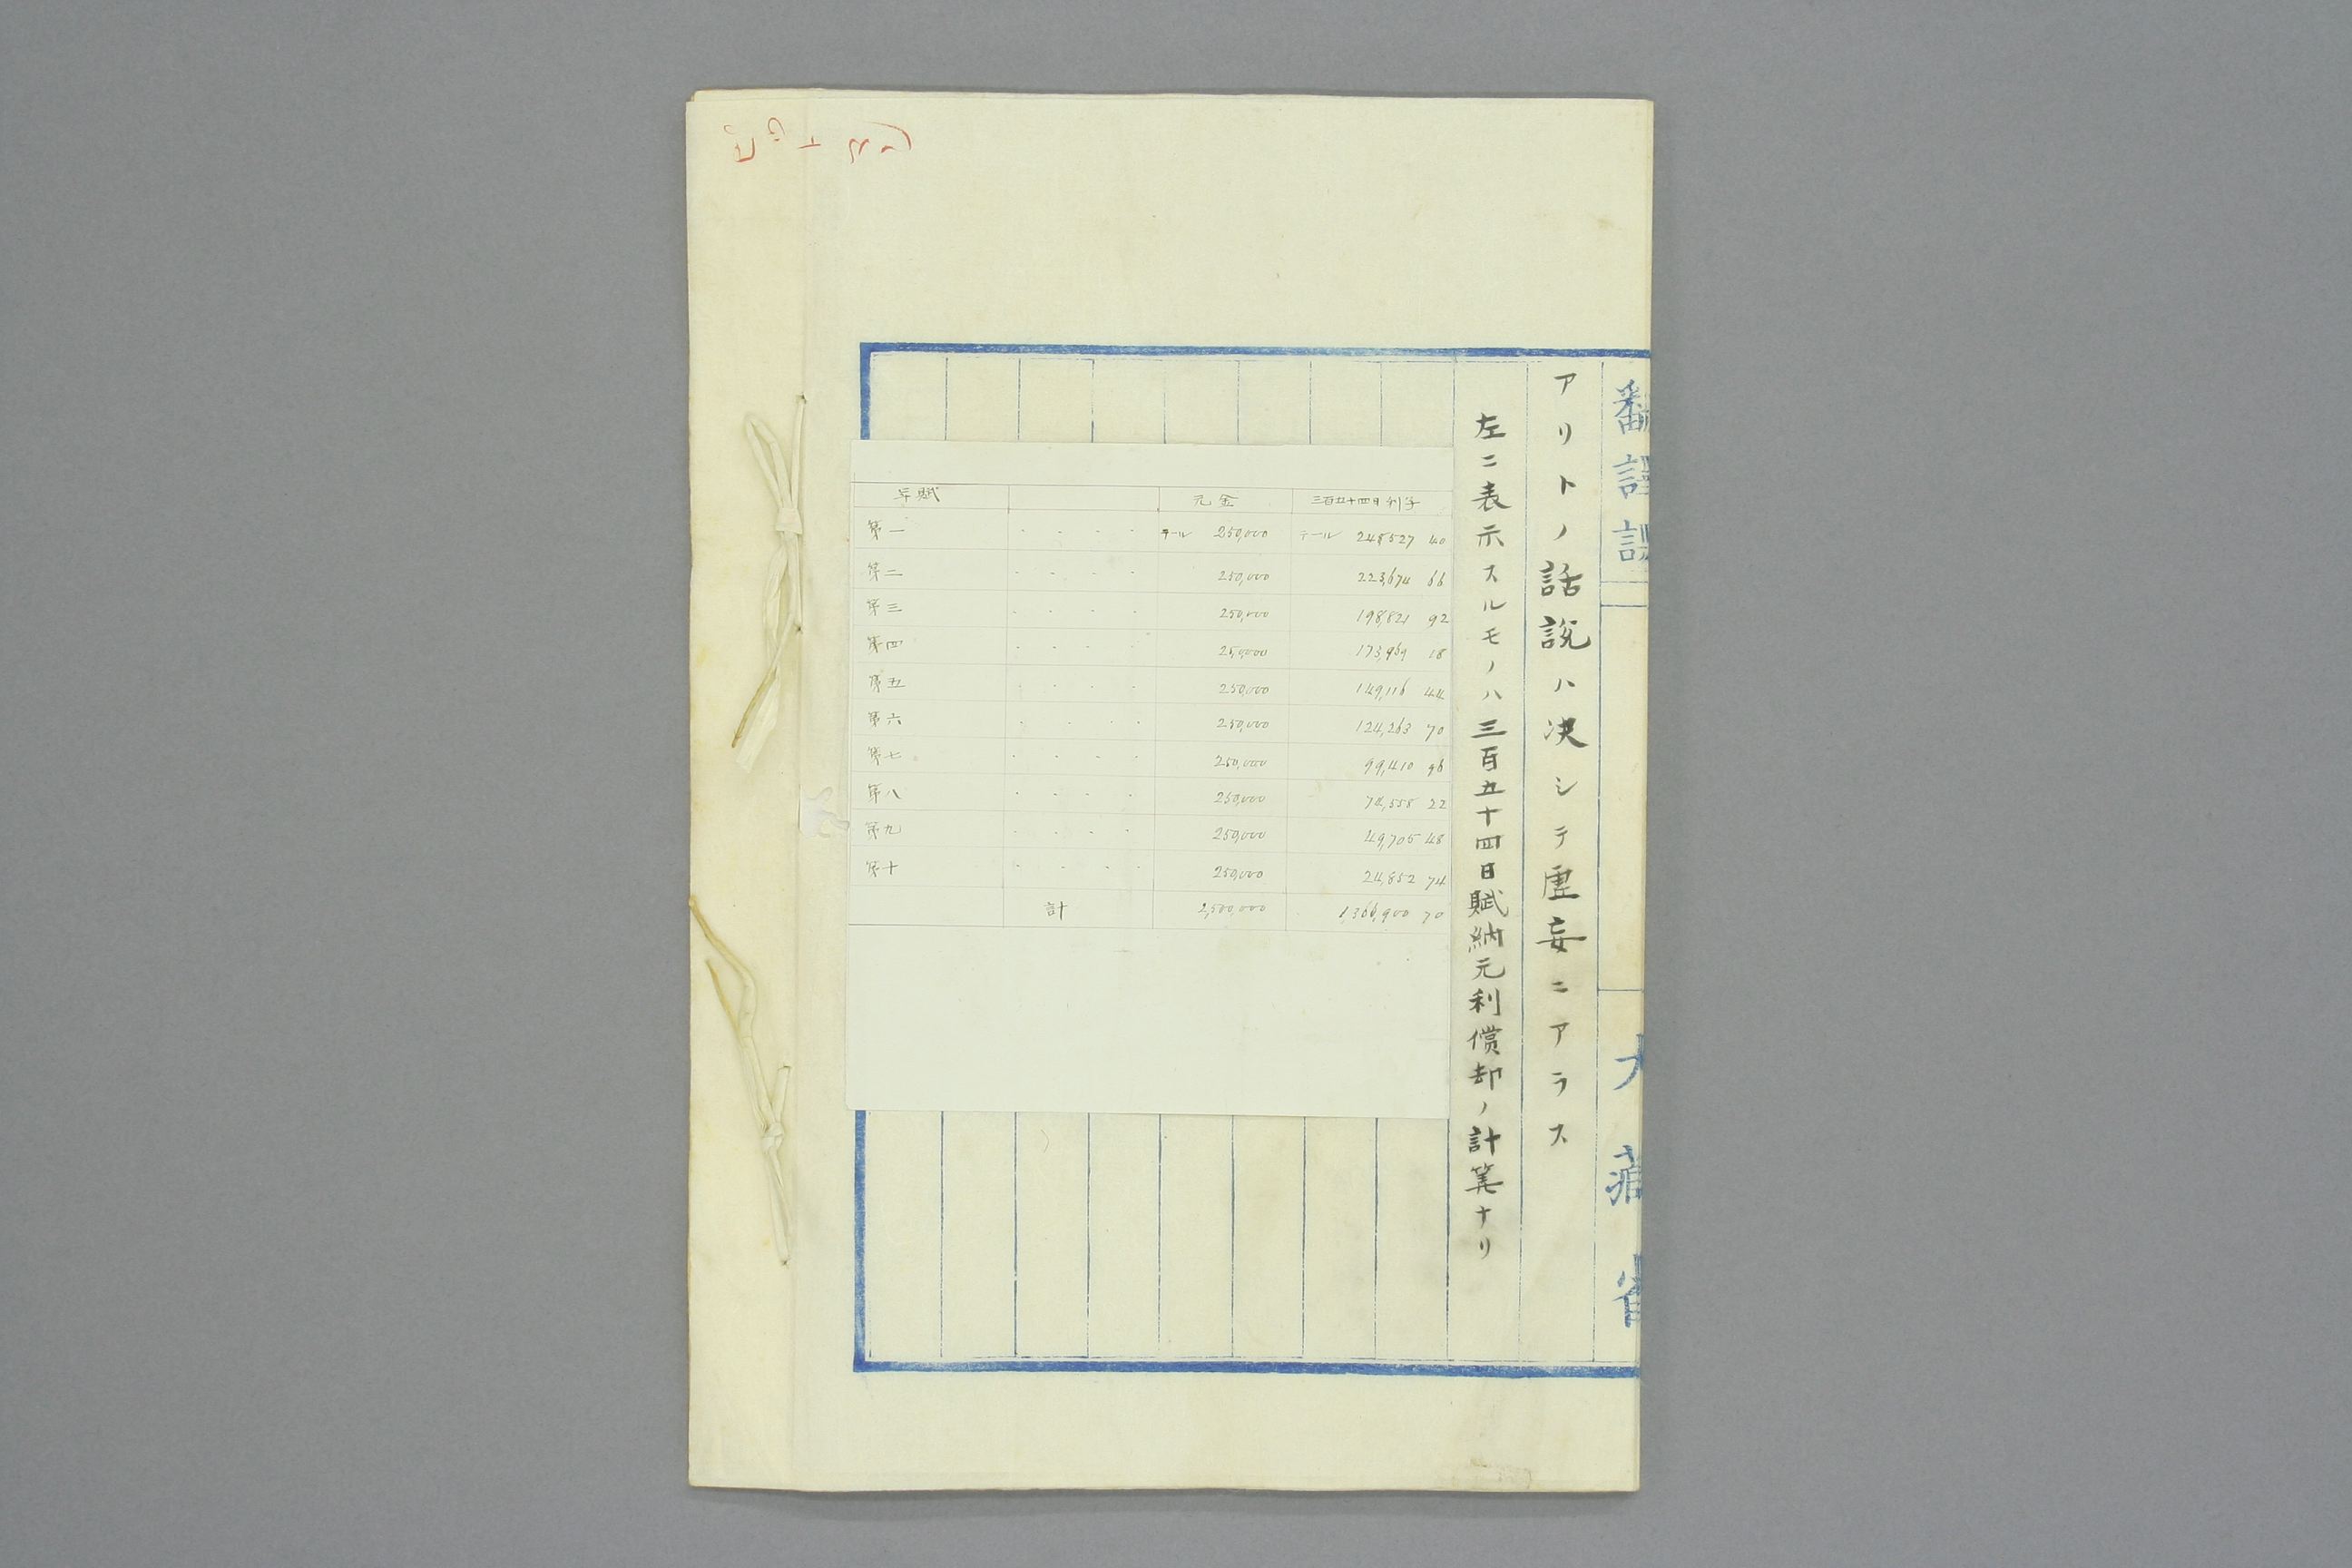 翻譯課
大藏省
アリトノ話説ハ决シテ虛妄ニアラス
左ニ表示スルモノハ三百五十四日賦納元利償却ノ計筭ナリ
年賦 元金 三百五十四日利子
第一 テール 250,000 テール 248,527 40
第二 250,000 223,674 66
第三 250,000 198,821 92
第四 250,000 173,969 18
第五 250,000 149,116 44
第六 250,000 124,263 70
第七 250,000 99,410 96
第八 250,000 74,558 22
第九 250,000 49,705 48
第十 250,000 24,852 74
計 2,500,000 1,366,900 70